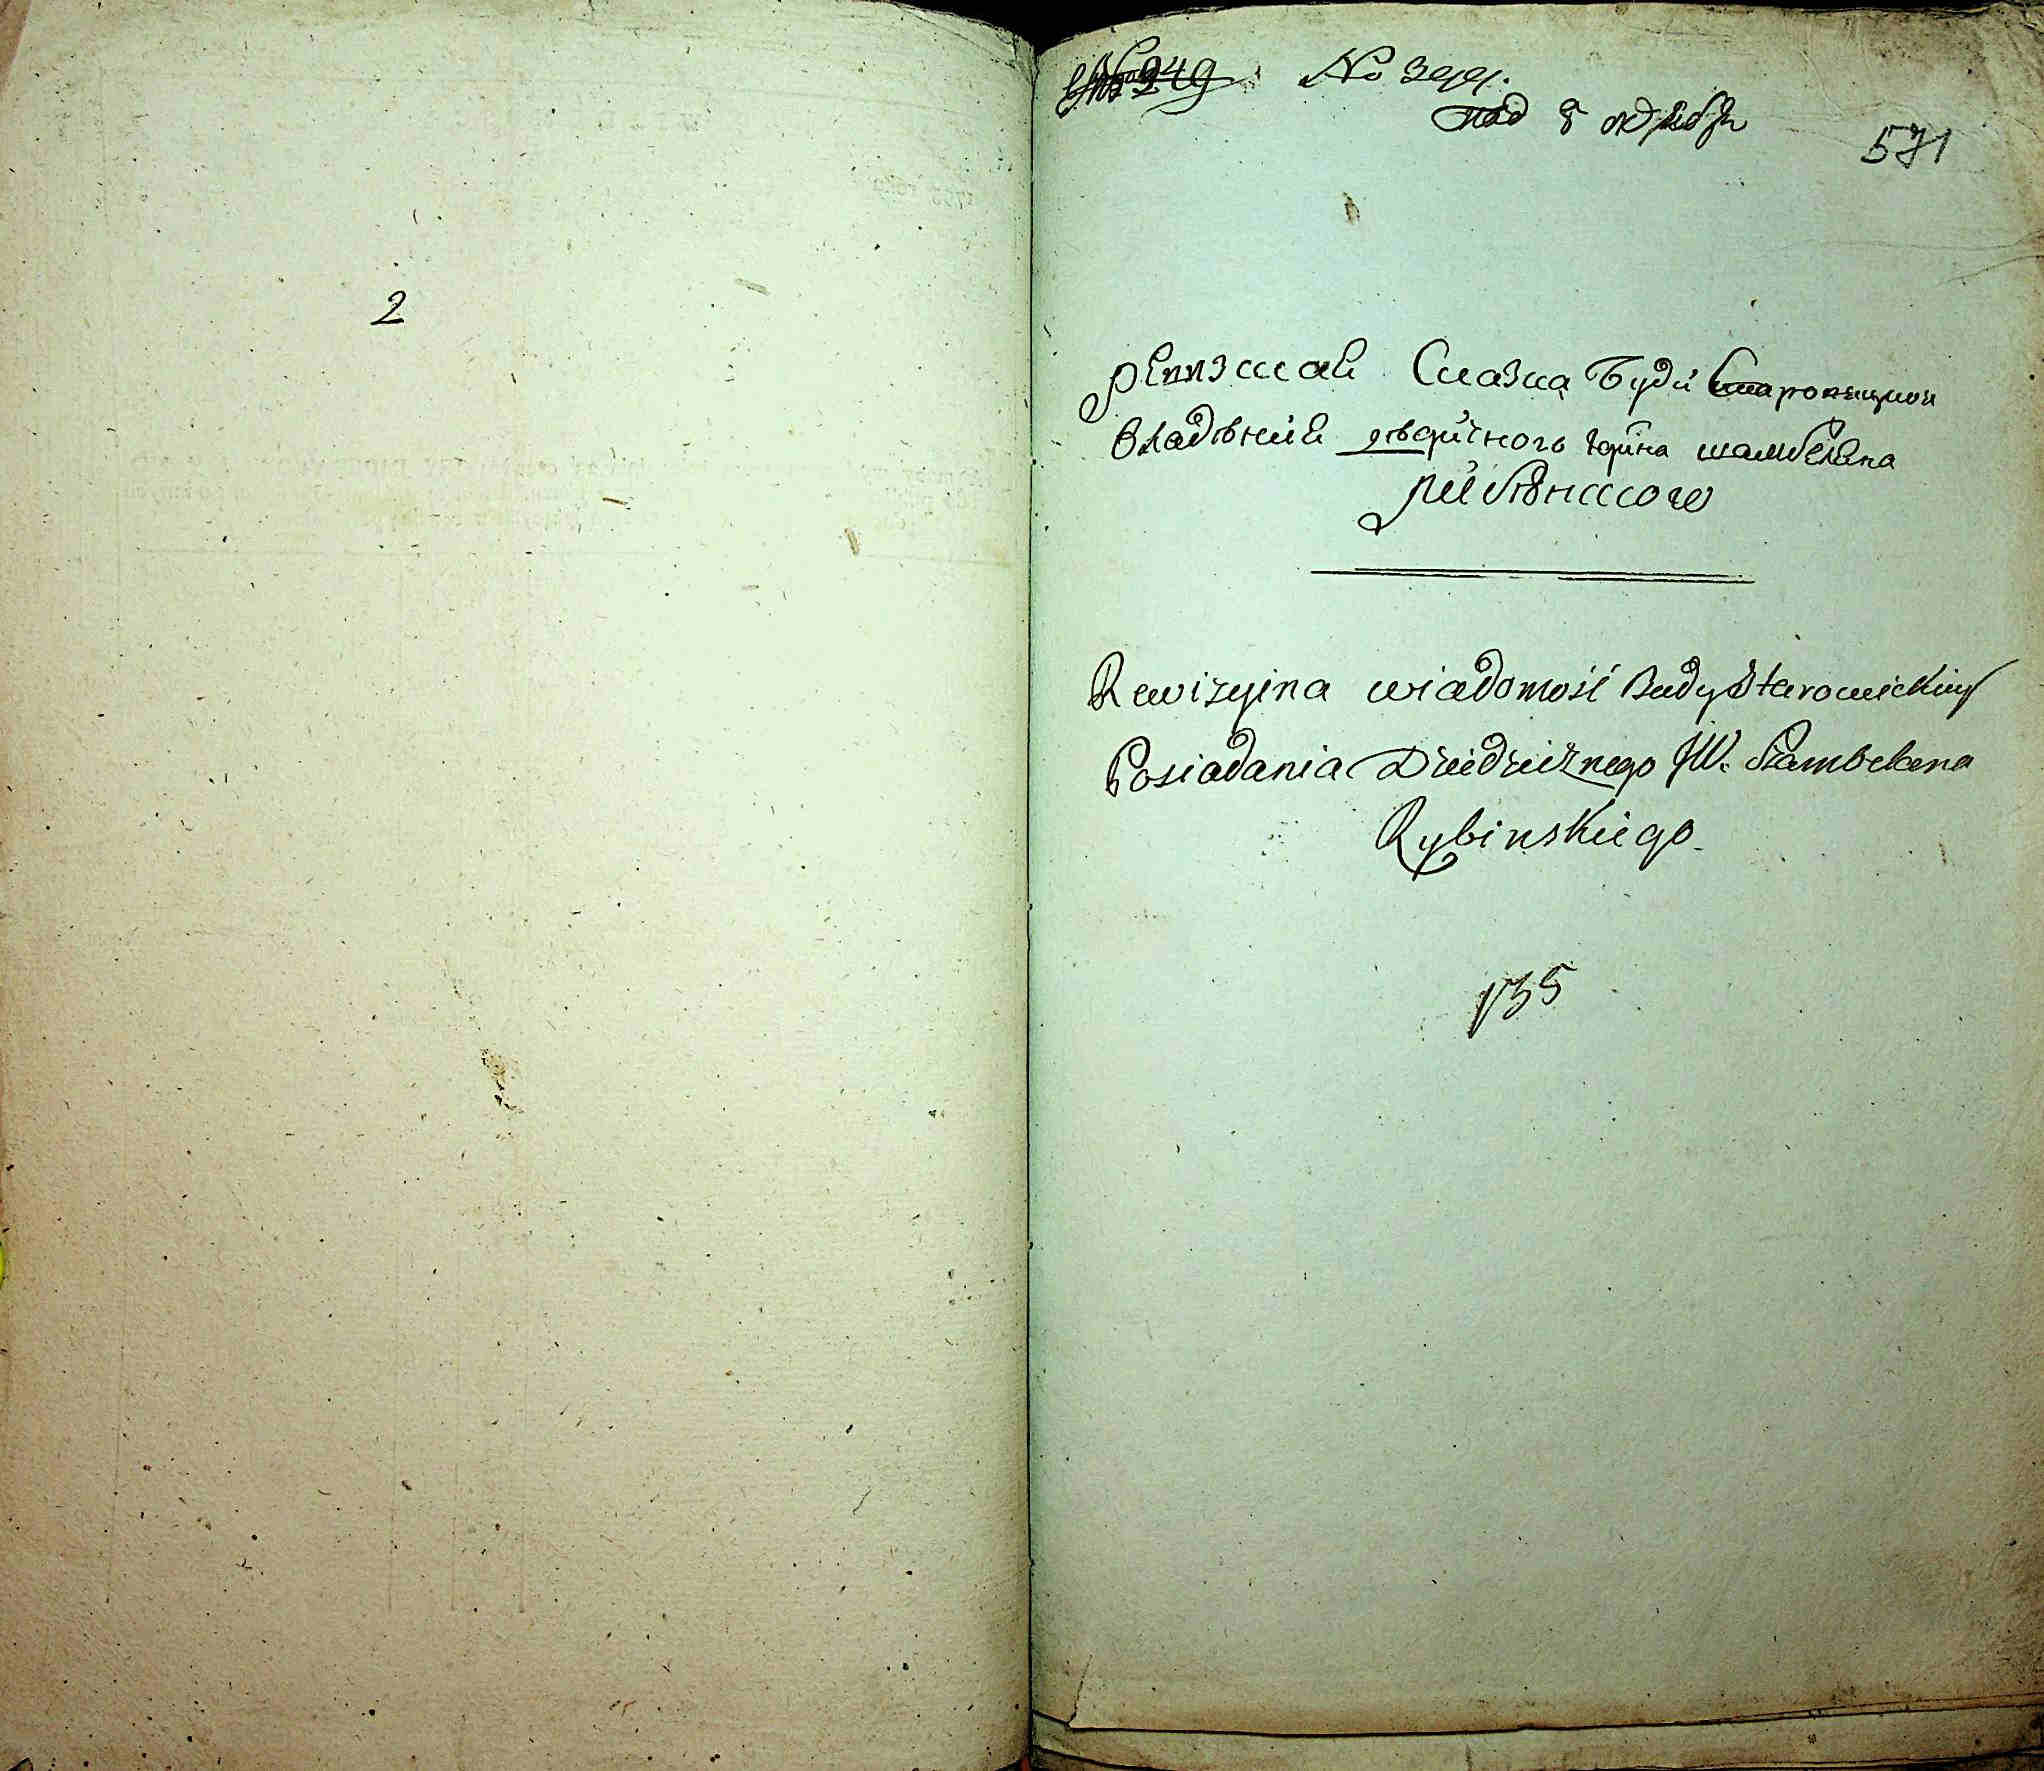 2
№ 249 № 3991.
под 8 октября
571
ревизская Сказка Буди Старовецкой
владѣния дѣдичного юрина шамбеляна
рибѣнского
Rewizyina wiadomość Budy Starowieckiey
Posiadania Dziedzicznego JW. Szambelana
Rybinskiego
135